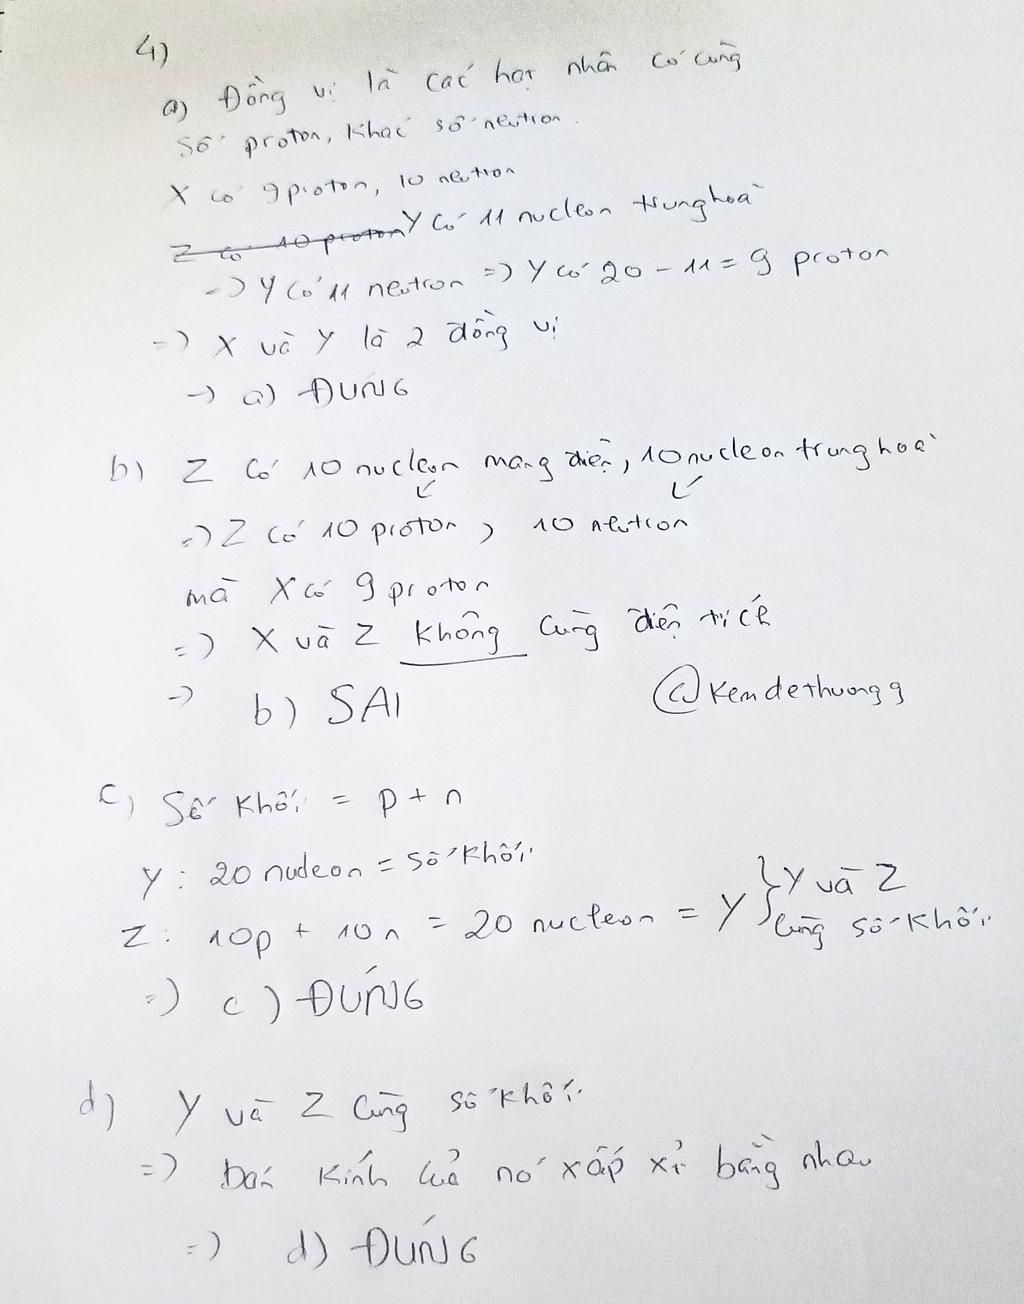 4)
a) Đồng vị là các hạt nhân có cùng
số proton, khác số neutron.
X có 9 proton, 10 neutron
Z có 10 proton Y có 11 nucleon trung hoà
=> Y có 11 neutron => Y có 20 - 11 = 9 proton
=> X và Y là 2 đồng vị
-> a) ĐÚNG
b) Z có 10 nucleon mang điện, 10 nucleon trung hoà
=> Z có 10 proton, 10 neutron
mà X có 9 proton
=> X và Z không cùng điện tích
-> b) SAI
@kemdethuongg
c) Số khối = p + n
Y: 20 nucleon = số khối
Z: 10p + 10n = 20 nucleon = Y } Y và Z
cùng số khối
=> c) ĐÚNG
d) Y và Z cùng số khối
=> bán kính của nó xấp xỉ bằng nhau
=> d) ĐÚNG